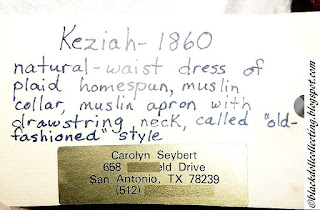 Keziah- 1860
natural-waist dress of
plaid homespun, muslin
collar, muslin apron with
drawstring neck, called "old-
fashioned" style
Carolyn Seybert
658 ld Drive
San Antonio, TX 78239
(512)
©blackdollcollecting.blogspot.com